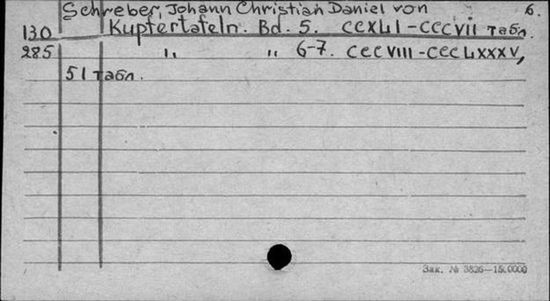 Schreber, Johann Christian Daniel von 6.
130 Kupfertafeln. Bd. 5. CCXLI-CCCVII табл.
285 " " 6-7. CCCVIII-CCCLXXXV,
51 табл.
Зак. № 3826—15.0000